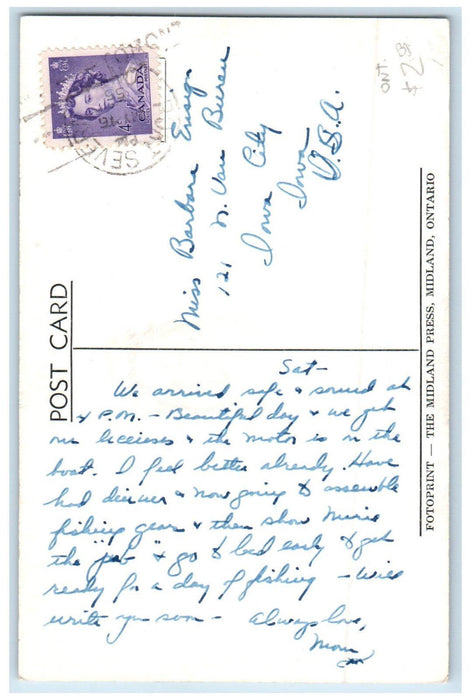 ONT.
$2.
4¢
CANADA
SEVE
Miss Barbara Ensign
121 N. Van Buren
Iowa City
Iowa
U.S.A.
POST CARD
FOTOPRINT — THE MIDLAND PRESS, MIDLAND, ONTARIO
Sat-
We arrived safe & sound at
4 P.M. - Beautiful day & we got
our licenses & the motor is on the
boat. I feel better already. Have
had dinner & now going to assemble
fishing gear & then show
the & go to bed early & get
ready for a day of fishing - Will
write you soon - Always love,
Mom